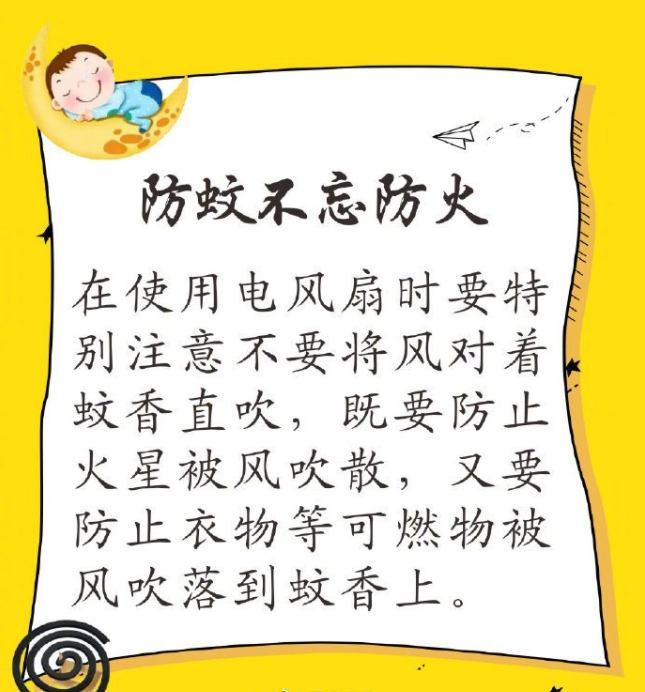 防蚊不忘防火
在使用电风扇时要特
别注意不要将风对着
蚊香直吹，既要防止
火星被风吹散，又要
防止衣物等可燃物被
风吹落到蚊香上。